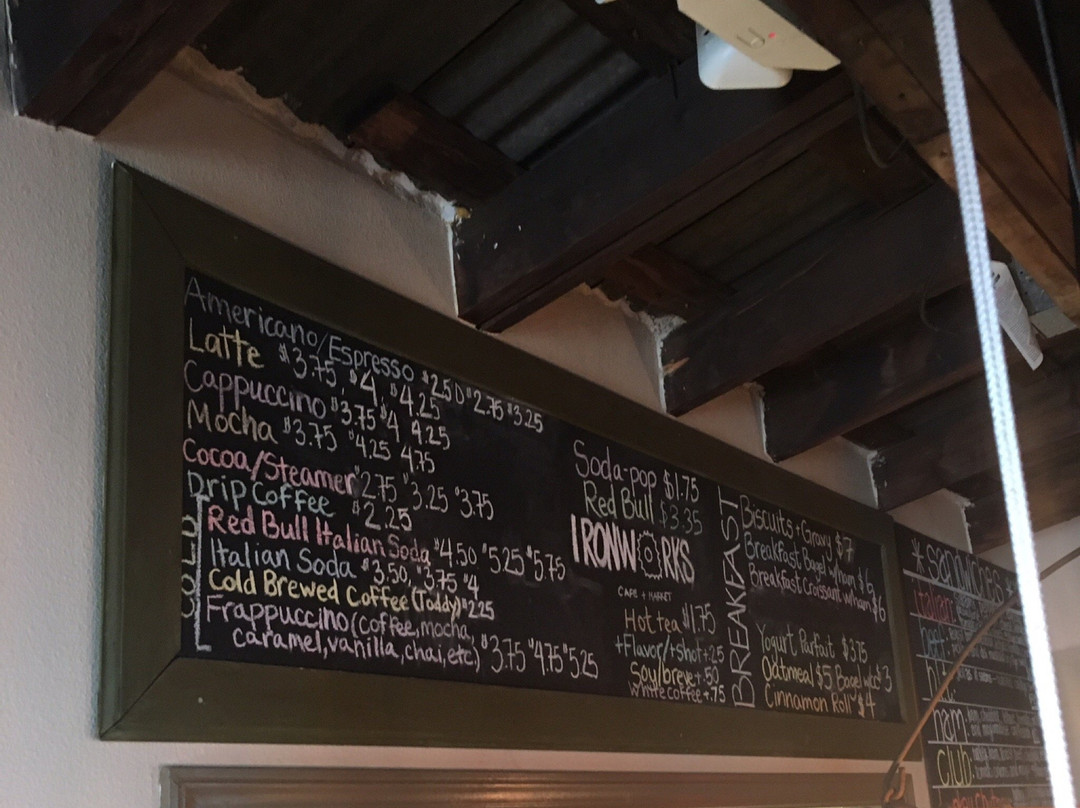 Americano/Espresso $2.50 $2.75 $3.25
Latte $3.75, $4, $4.25
Cappuccino $3.75 $4, 4.25
Mocha $3.75 $4.25 4.75
Cocoa/Steamer $2.75 $3.25 $3.75
Drip Coffee $2.25
Red Bull Italian Soda $4.50 $5.25 $5.75
Italian Soda $3.50, $3.75 $4
Cold Brewed Coffee (Toddy) $2.25
Frappuccino (coffee, mocha,
caramel, vanilla, chai, etc) $3.75 $4.75 $5.25
Soda-pop $1.75
Red Bull $3.35
IRONWORKS
CAFE + MARKET
Hot tea $1.75
+Flavor/+shot+.25
Soy/breve+.50
White coffee+.75
BREAKFAST
Biscuits + Gravy $7
Breakfast Bagel w/ham $6
Breakfast Croissant w/ham $6
Yogurt Parfait $3.75
Oatmeal $5 Bagel w/cc $3
Cinnamon Roll $4
*sandwiches
Italian
ham:
club: